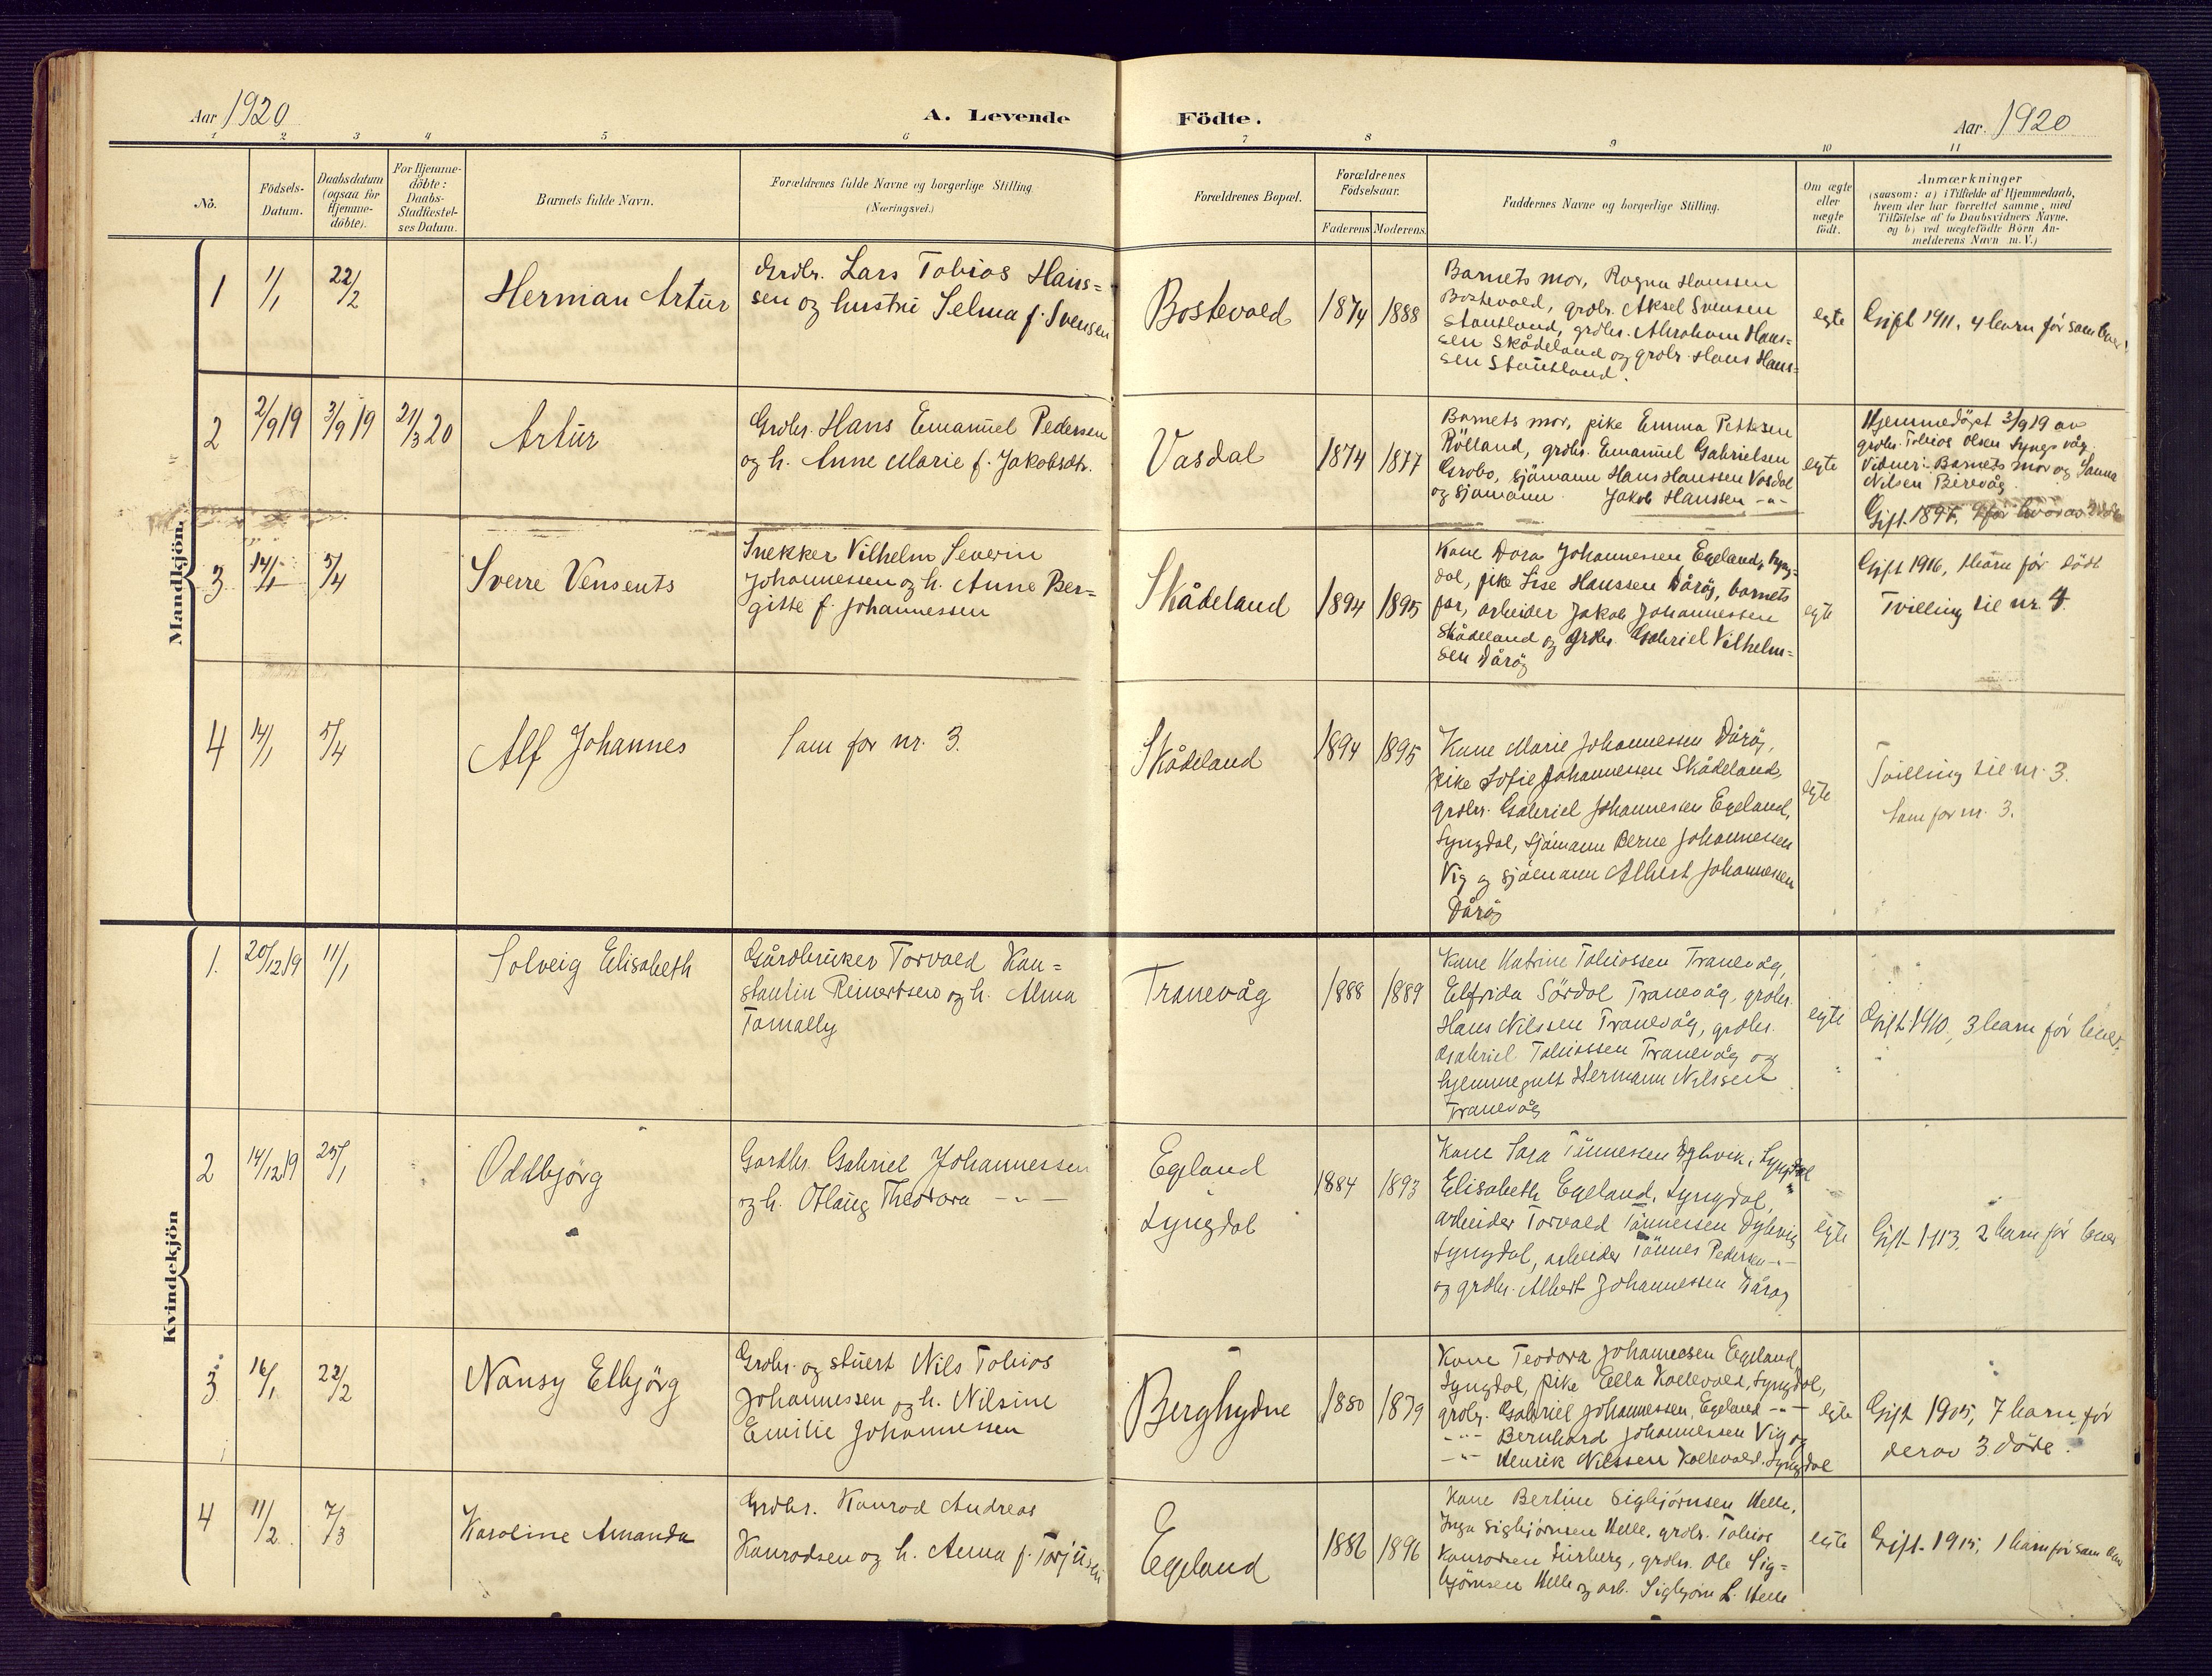 Aar 1920
A. Levende
Födte.
Aar. 1920
1 2 3 4 5 6 7 8 9 10 11
No.
Födsels-
Datum.
Daabsdatum
(ogsaa for
Hjemme-
döbte).
For Hjemme-
döbte:
Daabs-
Stadfæstel-
ses Datum.
Barnets fulde Navn.
Forældrenes fulde Navne og borgerlige Stilling.
(Næringsvei.)
Forældrenes Bopæl.
Forældrenes
Födselsaar.
Faderens Moderens
Faddernes Navne og borgerlige Stilling.
Om ægte
eller
uægte
födt.
Anmærkninger
(saasom: a) i Tilfælde af Hjemmedaab,
hvem der har forrettet samme, med
Tilföielse af to Daabsvidners Navne,
og b) ved uægtefödte Börn An-
melderens Navn m.V.)
Mandkjön
1
1/1
22/2
Herman Artur
Grdbr. Lars Tobias Hans=
sen og hustru Selma f. Svensen
Bostevold
1874
1888
Barnets mor, Ragna Hanssen
Bostevold, grdbr. Aksel Svensen
Stautland, grdbr. Abraham Hans=
sen Skådeland og grdbr. Hans Hans=
sen Stautland.
egte
Gift 1911, 4 barn för som lever
2
2/9 19
3/9 19
21/3 20
Artur
Grdbr. Hans Emanuel Pedersen
og h. Anne Marie f. Jakobsdtr.
Vasdal
1874
1877
Barnets mor, pike Emma Pettersen
Rölland, grdbr. Emanuel Gabrielsen
Grobo, sjömann Hans Hanssen Vasdal
og sjömann Jakob Hanssen -"-
egte
Hjemmedöpt 3/9 19 av
grdbr. Tobias Olsen Syngsvåg
Vidner: Barnets mor og Sanna
Nilsen Birevåg
Gift 1897,
3
14/1
5/4
Sverre Vensents
Snekker Vilhelm Severin
Johannessen og h. Anne Ber=
gitte f. Johannessen
Skådeland
1894
1895
Kone Dora Johannessen Egeland, Lyng=
dal, pike Lise Hanssen Dårög, barnets
far, arbeider Jakob Johannessen
Skådeland og grdbr. Gabriel Vilhelm=
sen Dårög
egte
Gift 1916, 1 barn för dödt
Tvilling til nr. 4
4
14/1
5/4
Alf Johannes
Som for nr. 3.
Skådeland
1894
1895
Kone Marie Johannessen Dårög,
pike Sofie Johannessen Skådeland,
grdbr. Gabriel Johannessen Egeland,
Lyngdal, sjömann Berne Johannessen
Vig og sjömann Albert Johannessen
Dårög
egte
Tvilling til nr. 3.
Som for nr. 3.
Kvindekjön
1.
20/12 19
11/1
Solveig Elisabeth
Gårdbruker Torvald Kon=
stantin Reinertsen og h. Alma
Tomally
Tranevåg
1888
1889
Kone Katrine Tobiassen Tranevåg,
Elfrida Sördal Tranevåg, grdbr.
Hans Nilssen Tranevåg, grdbr.
Gabriel Tobiassen Tranevåg og
hjemmegutt Hermann Nilssen
Tranevåg
egte
Gift 1910, 3 barn för lever.
2
14/12 19
25/1
Oddbjörg
Gardbr. Gabriel Johannessen
og h. Otlaug Theodora -"-
Egeland
Lyngdal
1884
1893
Kone Sara Tönnessen Dybvik, Lyngdal
Elisabeth Egeland, Lyngdal,
arbeider Torvald Tönnessen Dybvig
Lyngdal, arbeider Tönnes Pedersen -"-
og grdbr. Albert Johannessen Dårög
egte
Gift 1913, 2 barn för lever
3
16/1
22/2
Nansy Elbjörg
Grdbr. og stuert Nils Tobias
Johannessen og h. Nilsine
Emilie Johannessen
Berghydne
1880
1879
Kone Teodora Johannessen Egeland
Lyngdal, pike Ella Kollevold, Lyngdal,
grdbr. Gabriel Johannessen, Egeland -"-
-"- Bernhard Johannessen Vig og
-"- Henrik Nilssen Kollevold, Lyngdal
egte
Gift 1905, 7 barn för
derav 3 döde.
4
11/2
7/3
Karoline Amanda
Grdbr. Konrad Andreas
Konradsen og h. Anna f. Torjusen
Egeland
1886
1896
Kone Bertine Sigbjörnsen Helle,
Inga Sigbjörnsen Helle, grdbr. Tobias
Konradsen, grdbr. Ole Sig=
björnsen Helle og arb. Sigbjörn L. Helle
egte
Gift 1915, 1 barn för som lever